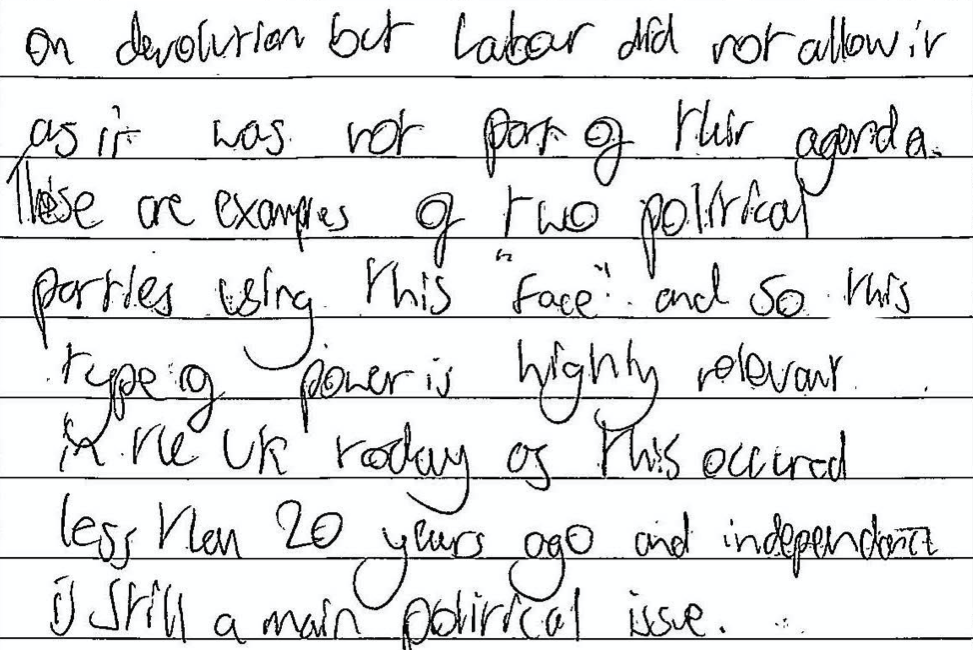 on devolution but Labour did not allow it
as it was not part of their agenda.
These are examples of two political
parties using this "face" and so this
type of power is highly relevant
in the UK today as this occured
less than 20 years ago and independence
is still a main political issue.